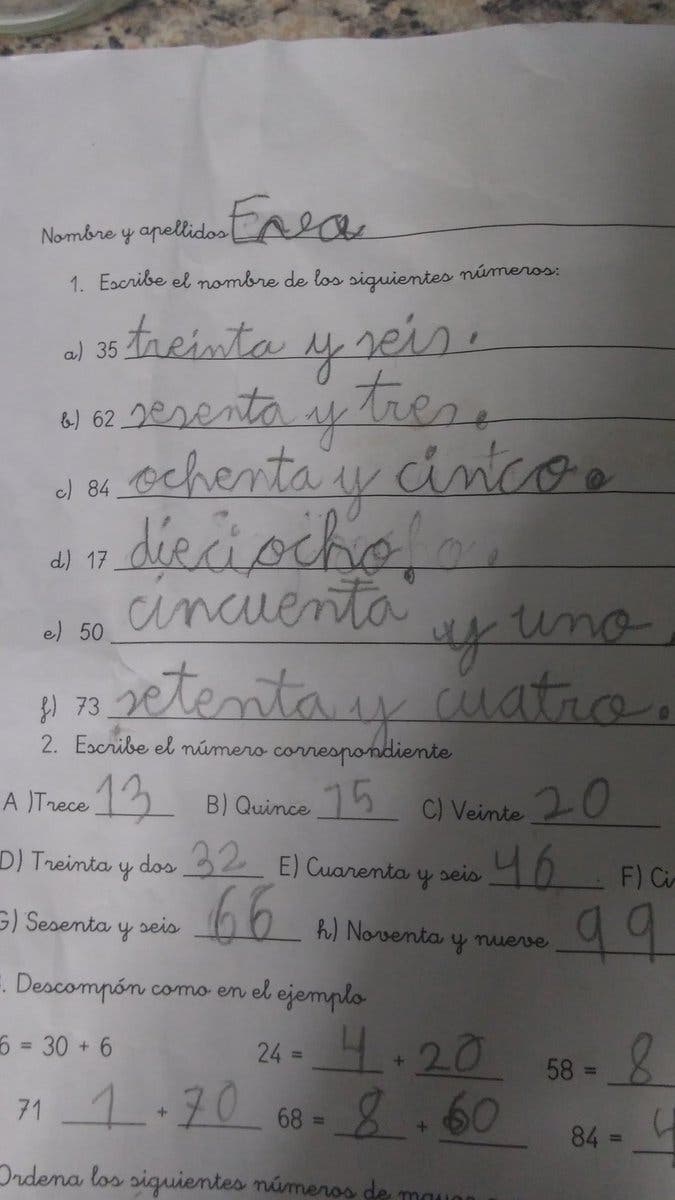 Nombre y apellidos Enea
1. Escribe el nombre de los siguientes números:
a) 35 treinta y seis.
b) 62 sesenta y tres.
c) 84 ochenta y cinco.
d) 17 dieciocho.
e) 50 cincuenta y uno
f) 73 setenta y cuatro.
2. Escribe el número correspondiente
A )Trece 13 B) Quince 15 C) Veinte 20
D) Treinta y dos 32 E) Cuarenta y seis 46 F) Ci
G) Sesenta y seis 66 h) Noventa y nueve 99
. Descompón como en el ejemplo
6 = 30 + 6 24 = 4 + 20 58 = 8
71 1 + 70 68 = 8 + 60 84 = 4
Ordena los siguientes números de